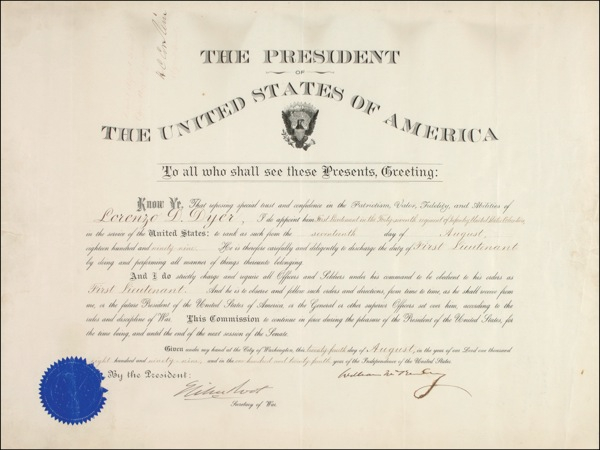 THE PRESIDENT
OF
THE UNITED STATES OF AMERICA
To all who shall see these Presents, Greeting:
Know Ye, That reposing special trust and confidence in the Patriotism, Valor, Fidelity, and Abilities of
Lorenzo D. Dyer, I do appoint him First Lieutenant in the Forty-seventh regiment of Infantry United States Volunteers,
in the service of the United States: to rank as such from the seventeenth day of August,
eighteen hundred and ninety-nine. He is therefore carefully and diligently to discharge the duty of First Lieutenant
by doing and performing all manner of things thereunto belonging.
And I do strictly charge and require all Officers and Soldiers under his command to be obedient to his orders as
First Lieutenant. And he is to observe and follow such orders and directions, from time to time, as he shall receive from
me, or the future President of the United States of America, or the General or other superior Officers set over him, according to the
rules and discipline of War. This Commission to continue in force during the pleasure of the President of the United States, for
the time being, and until the end of the next session of the Senate.
Given under my hand at the City of Washington, this twenty-fourth day of August, in the year of our Lord one thousand
eight hundred and ninety-nine, and in the one hundred and twenty-fourth year of the Independence of the United States.
By the President:
Elihu Root
William McKinley
Secretary of War.